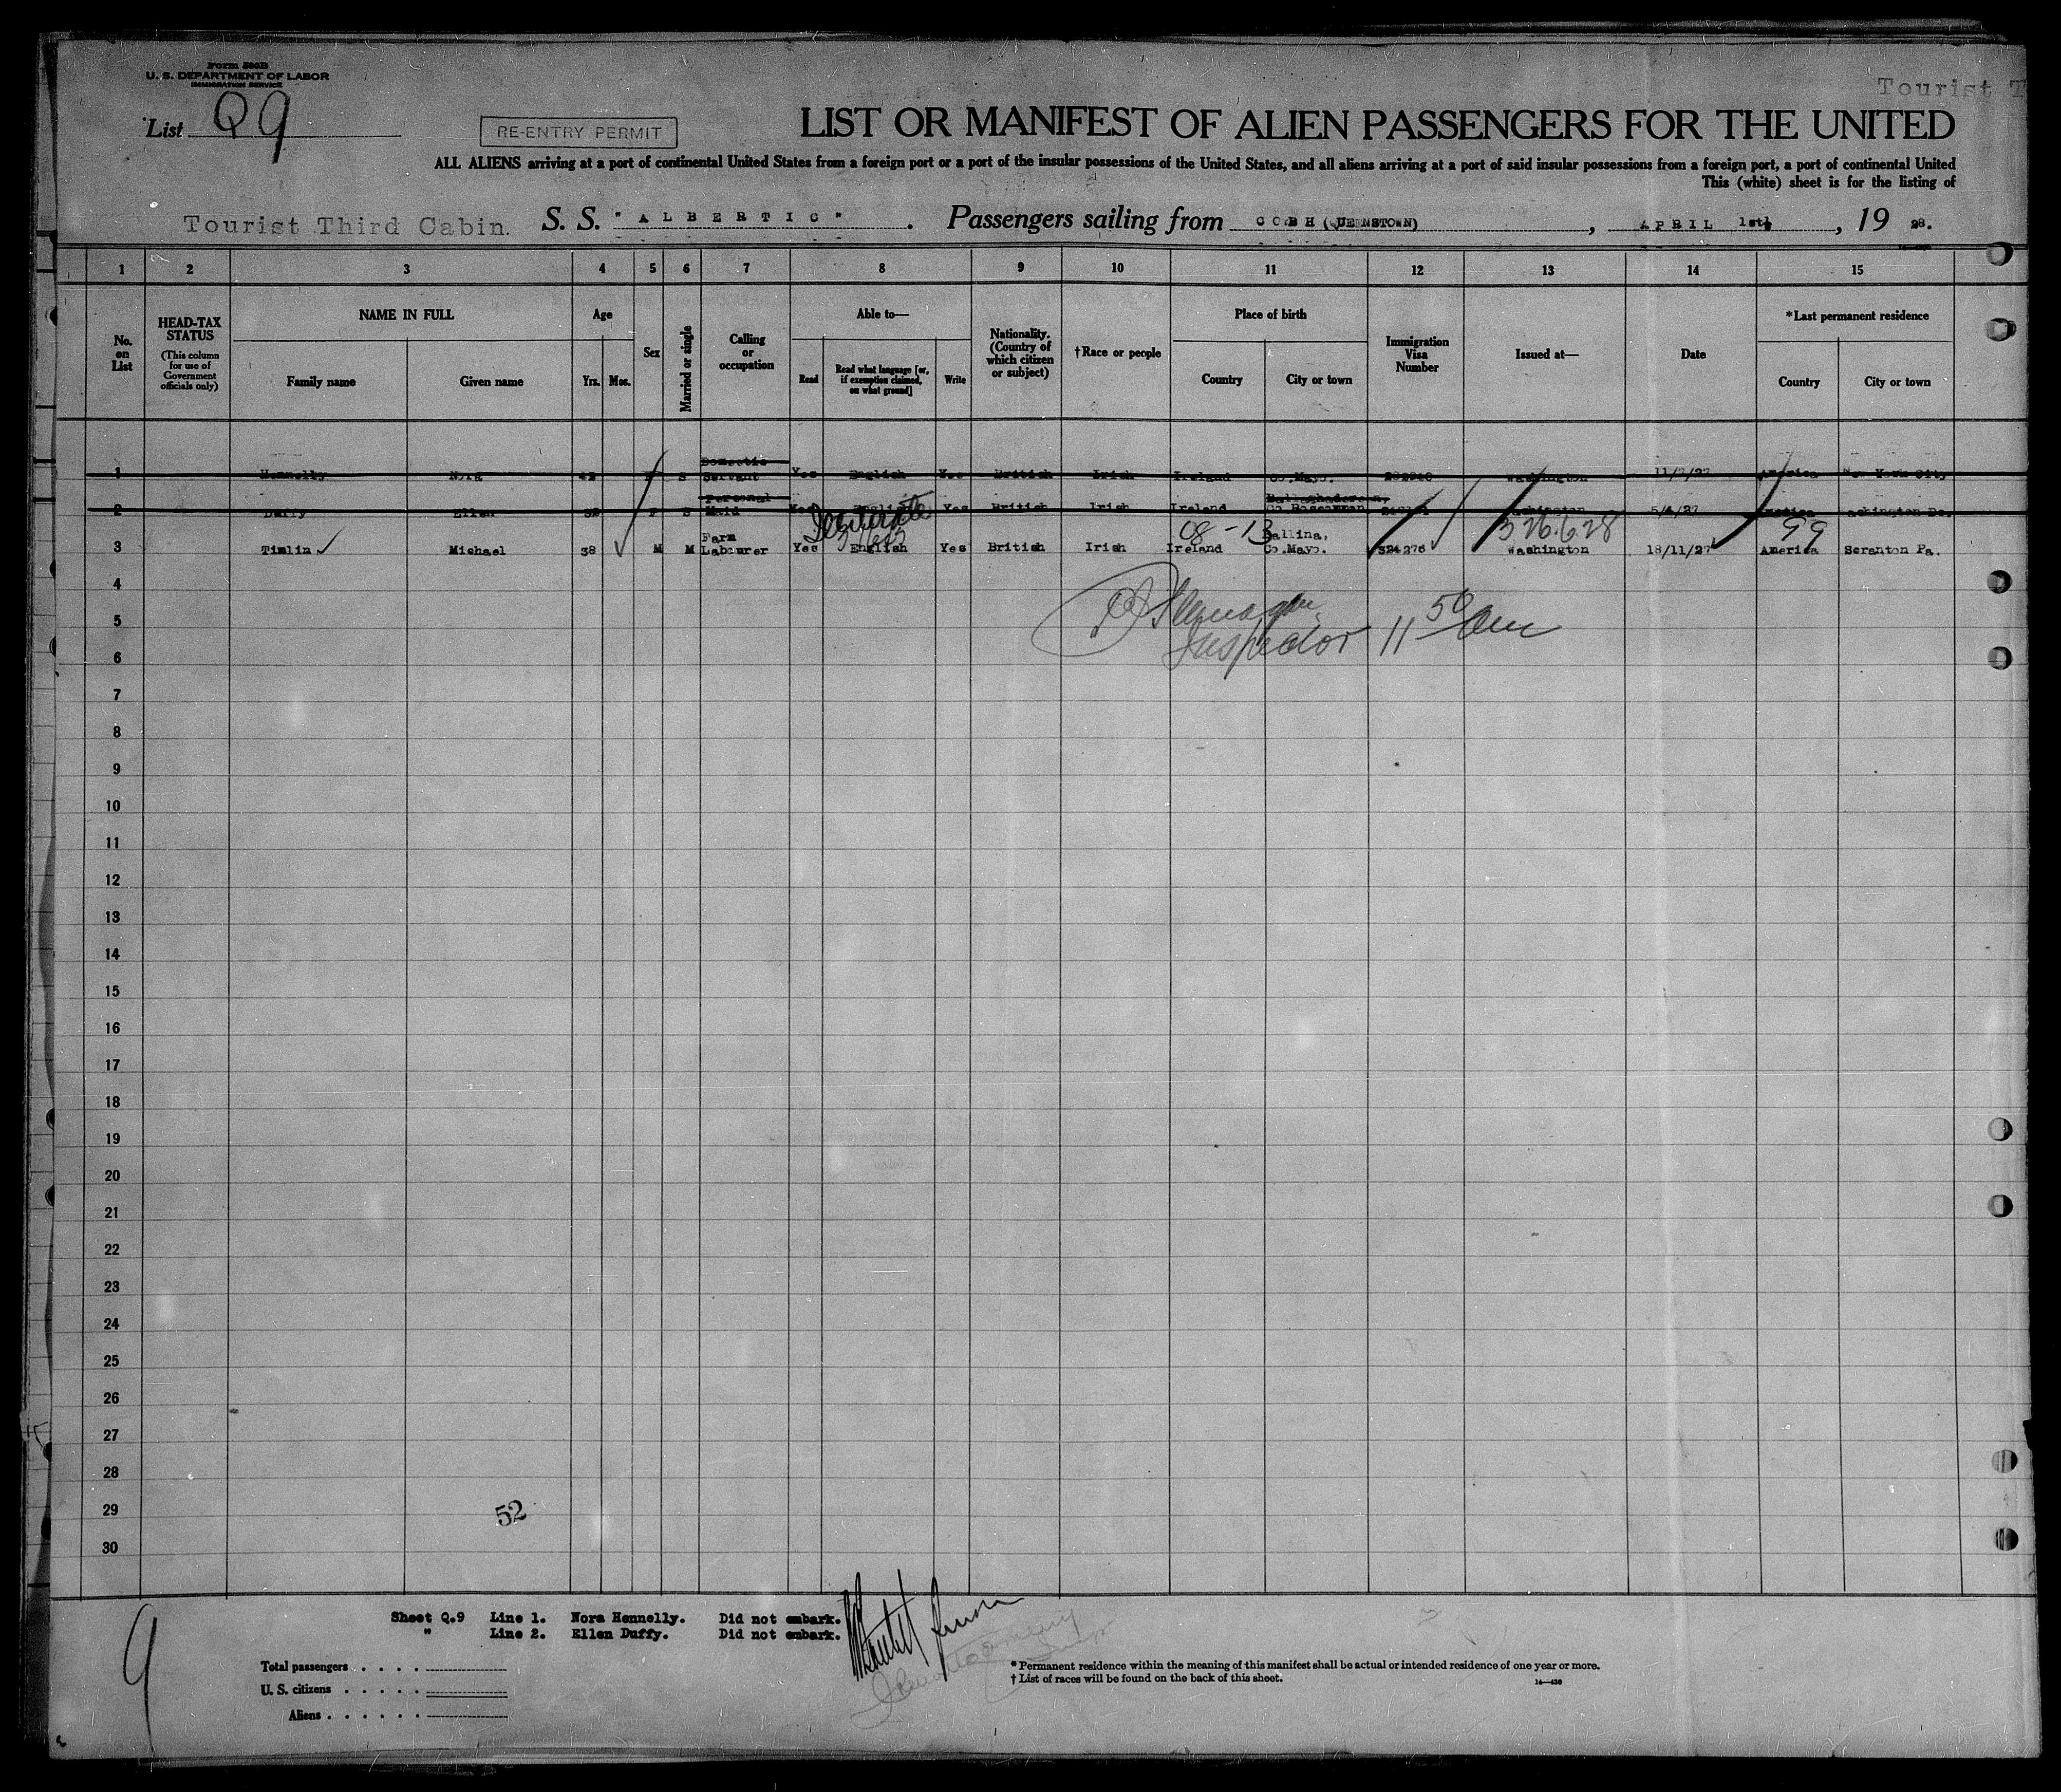 Form 500B
U. S. DEPARTMENT OF LABOR
IMMIGRATION SERVICE
Tourist T
List Q9
RE-ENTRY PERMIT
LIST OR MANIFEST OF ALIEN PASSENGERS FOR THE UNITED
ALL ALIENS arriving at a port of continental United States from a foreign port or a port of the insular possessions of the United States, and all aliens arriving at a port of said insular possessions from a foreign port, a port of continental United
This (white) sheet is for the listing of
Tourist Third Cabin. S. S. "ALBERTIC". Passengers sailing from COBH (QUEENSTOWN), APRIL 1st, 19 28.
1 2 3 4 5 6 7 8 9 10 11 12 13 14 15
No. on List
HEAD-TAX STATUS (This column for use of Government officials only)
NAME IN FULL
Family name Given name
Age
Yrs. Mos.
Sex
Married or single
Calling or occupation
Able to—
Read Read what language [or, if exemption claimed, on what ground] Write
Nationality. (Country of which citizen or subject)
†Race or people
Place of birth
Country City or town
Immigration Visa Number
Issued at—
Date
*Last permanent residence
Country City or town
1 Hennelly Nora S Domestic Servant Yes English Yes British Irish Ireland Co.Mayo. Washington 11/7/27 America New York City
2 Duffy Ellen F S Personal Maid Yes English Yes British Irish Ireland Ballaghadereen, Co Roscommon Washington 5/4/27 America Washington Dc.
08-13 326.628 99
3 Timlin Michael 38 M M Farm Labourer Yes English Yes British Irish Ireland Ballina, Co.Mayo. 324276 Washington 18/11/27 America Scranton Pa.
4
5
Inspector 11 50 am
6
7
8
9
10
11
12
13
14
15
16
17
18
19
20
21
22
23
24
25
26
27
28
29
52
30
Sheet Q.9 Line 1. Nora Hennelly. Did not embark.
" Line 2. Ellen Duffy. Did not embark.
9
Total passengers . . . .
U. S. citizens . . . . .
Aliens . . . . . .
* Permanent residence within the meaning of this manifest shall be actual or intended residence of one year or more.
† List of races will be found on the back of this sheet.